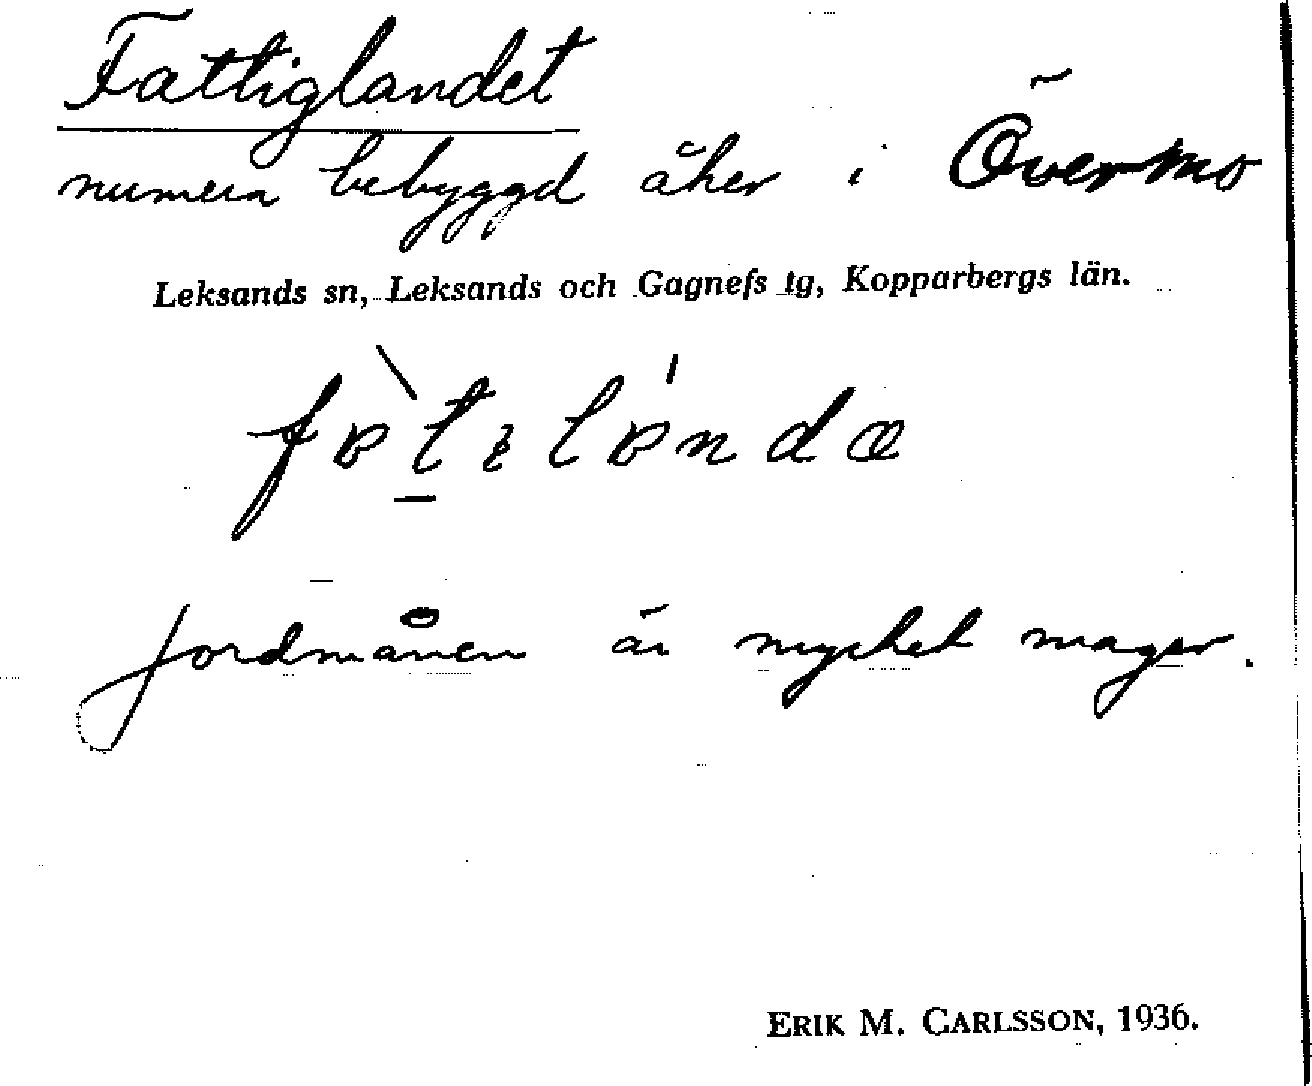 Fattiglandet
numera bebyggd åker i Övermo
Leksands sn, Leksands och Gagnefs tg, Kopparbergs län.
Jordmånen är mycket mager.
ERIK M. CARLSSON, 1936.